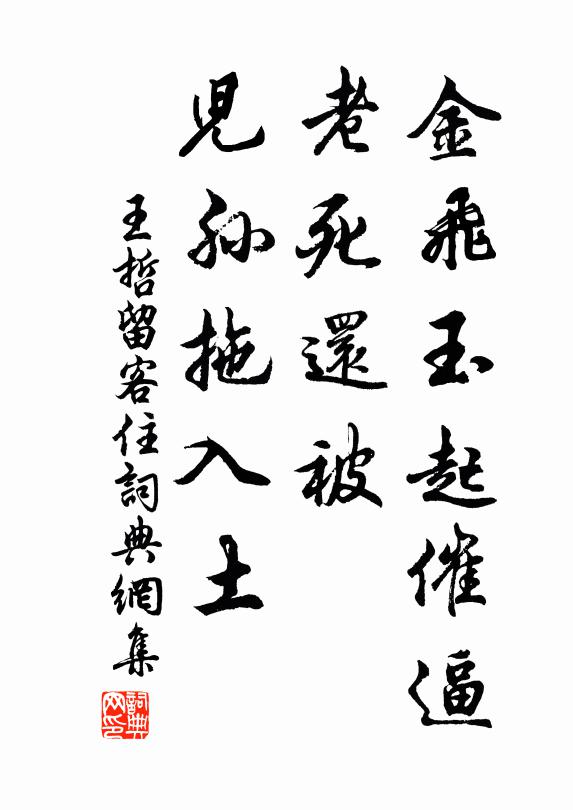 金飛玉起催逼
老死還被
兒孫拖入土
王哲留客住詞典網集
詞典網印